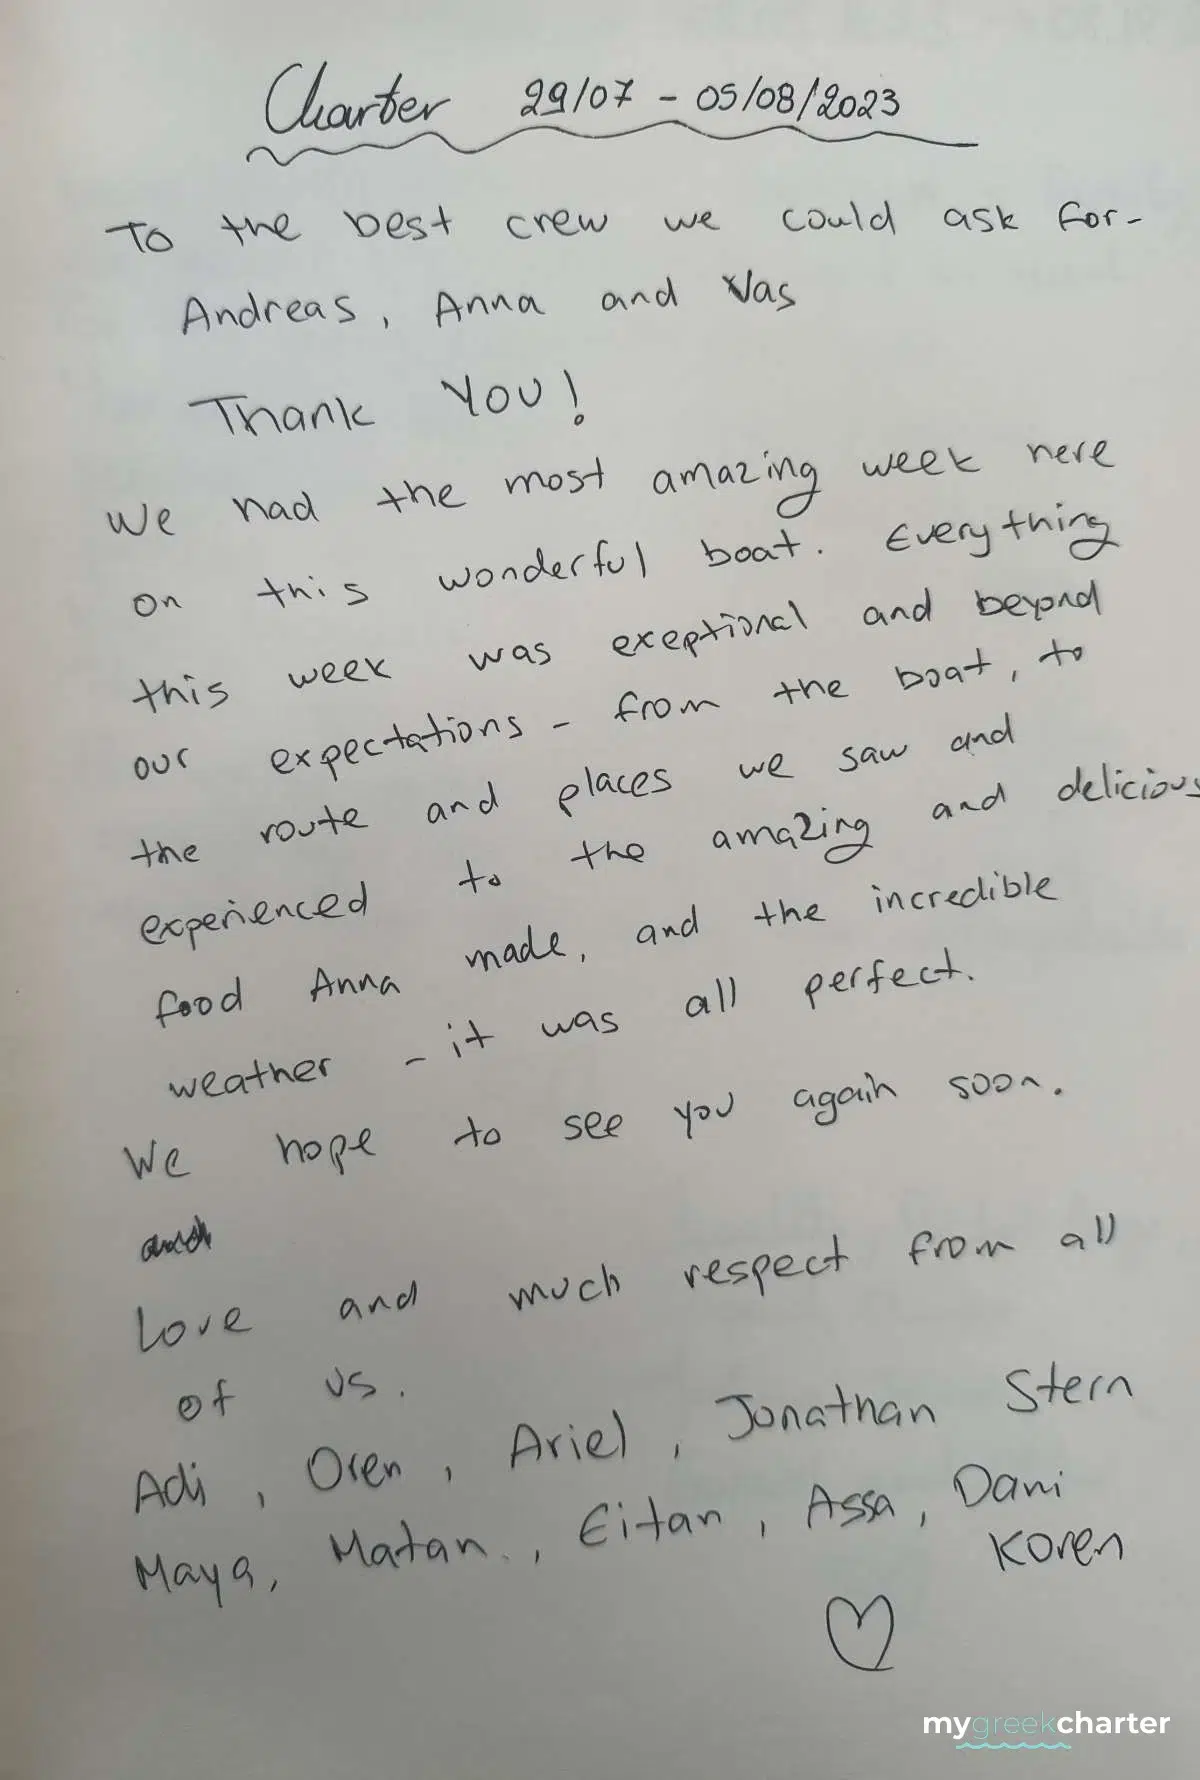 Charter 29/07 - 05/08/2023
To the best crew we could ask for-
Andreas, Anna and Vas
Thank You!
We had the most amazing week here
on this wonderful boat. Everything
this week was exeptional and beyond
our expectations - from the boat, to
the route and places we saw and
experienced to the amazing and delicious
food Anna made, and the incredible
weather - it was all perfect.
We hope to see you again soon.
Love and much respect from all
of us.
Adi, Oren, Ariel, Jonathan Stern
Maya, Matan., Eitan, Assa, Dani
Koren
mygreekcharter